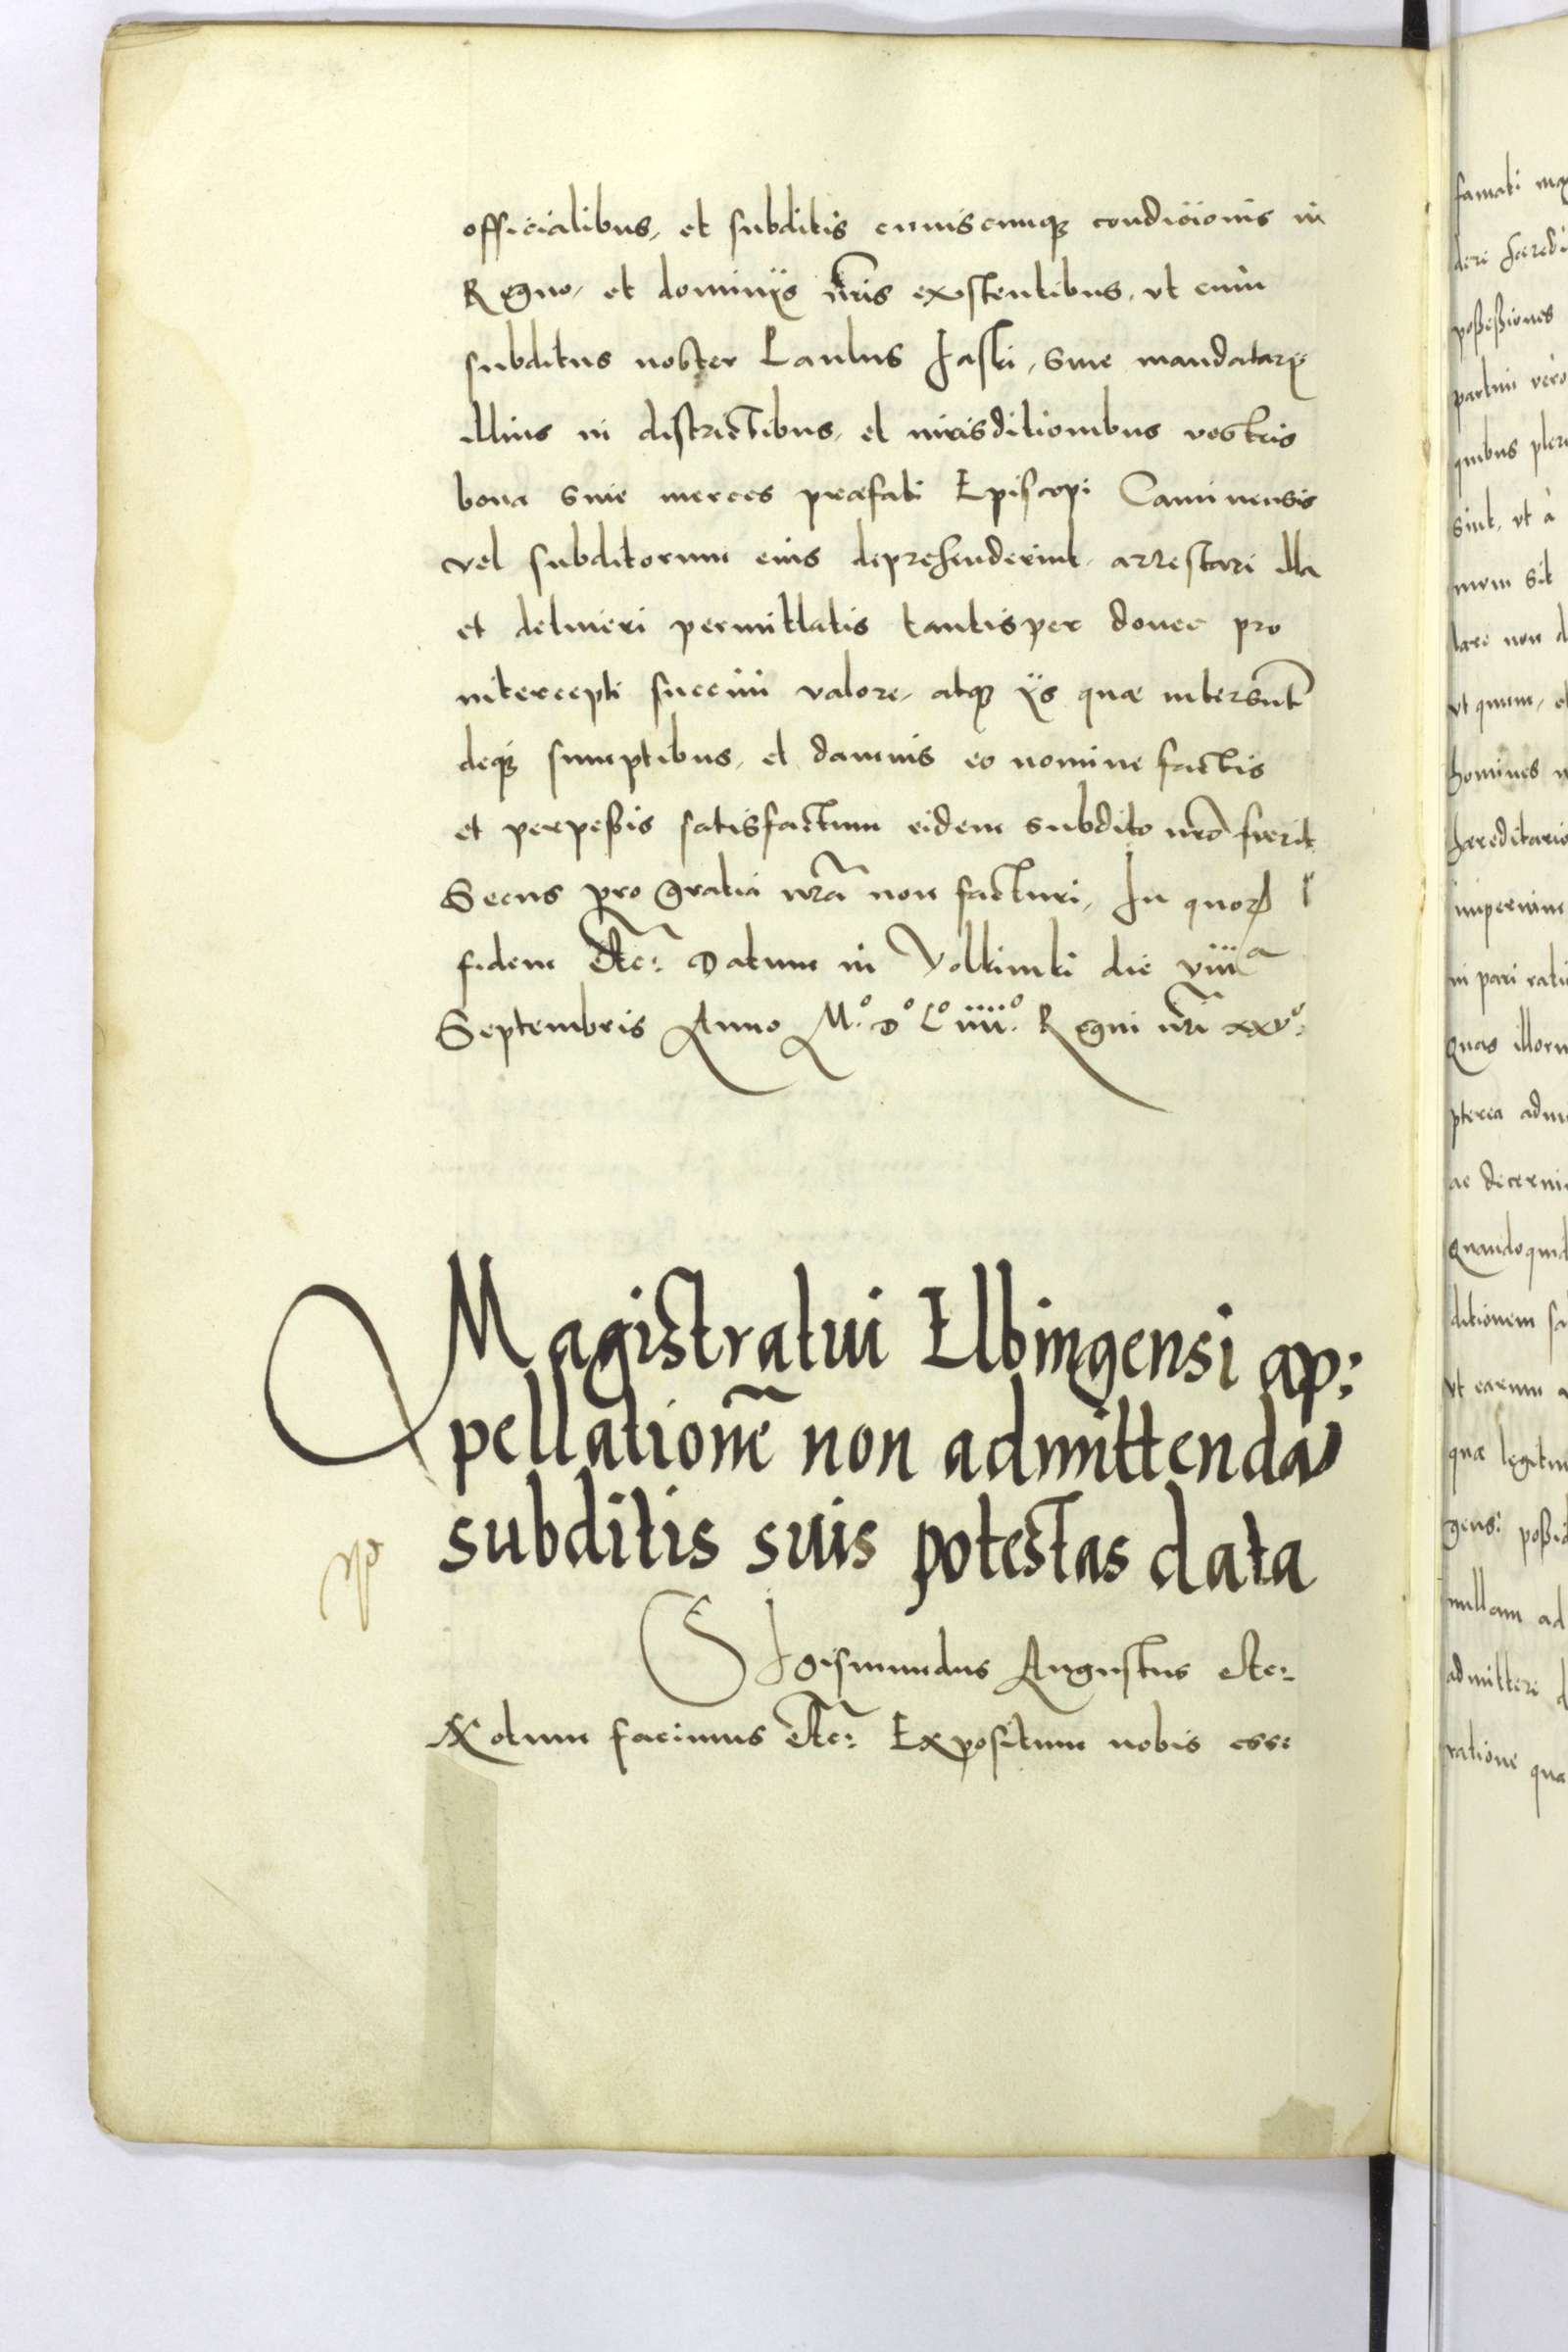 officialibus, et subditis cuiuscunq3 condicionis in
Regno, et dominijs nr̃is existentibus, vt cum
subditus noster Paulus Jaski, siue mandatarij
illius in districtibus, et iurisditionibus vestris
bona siue merces præfati Episcopi Caminensis
vel subditorum eius deprehenderint, arrestari illa
et detineri permittatis tantisper donec pro
intercepti succini valore, atq3 ijs quæ intersunt
deq3 sumptibus, et damnis eo nomine factis
et perpeßis satisfactum eidem subdito nrõ fuerit
Secus pro gratia nrã non facturi, In quor
fidem Etc: Datum in Volkiniki die viiiᵃ
Septembris Anno M.º Dº Lº iiii.º Regni nrĩ xxvº:
Magistratui Elbingensi ap:
pellationẽ non admittendã
subditis suis potestas data
Sigismundus Augustus etc:
Notum facimus Etc: Expositum nobis esse
famati
dere hæredi
poßeßiones
partim vero
quibus pler
sint, vt à
mem sit
tare non d
vt quum, et
homines
hæreditario
imperium
in pari rati
quas illoru
pterea adm
ac decerni
Quandoquid
ditionem sa
vt earum a
quæ legitim
gens: poßid
nullam ad
admittere d
ratione qua